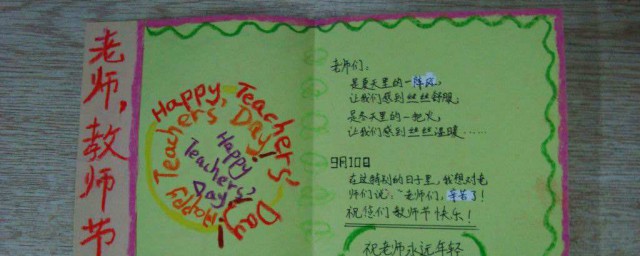 老师,教师节
Happy Teachers' Day!
Happy Teachers' Day!
Happy
Teachers'
Day!
老师们:
是夏天里的一阵风,
让我们感到丝丝舒服,
是冬天里的一把火,
让我们感到丝丝温暖……
9月10日
在这特别的日子里,我想对老
师们说:“老师们,辛苦了!
祝您们教师节快乐!
祝老师永远年轻